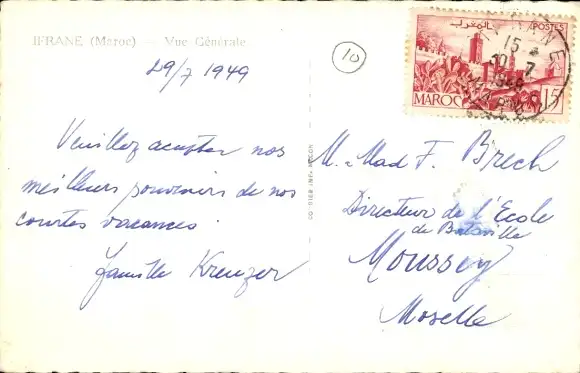 IFRANE (Maroc) — Vue Générale
29/7 1949
Veuillez accepter nos
meilleurs souvenirs de nos
courtes vacances.
Famille Kreuzer
10
POSTES
المغرب
15
1949
MAROC 15F
M. Mad F. Brech
Directeur de l'Ecole
de Bataville
Moussey
Moselle